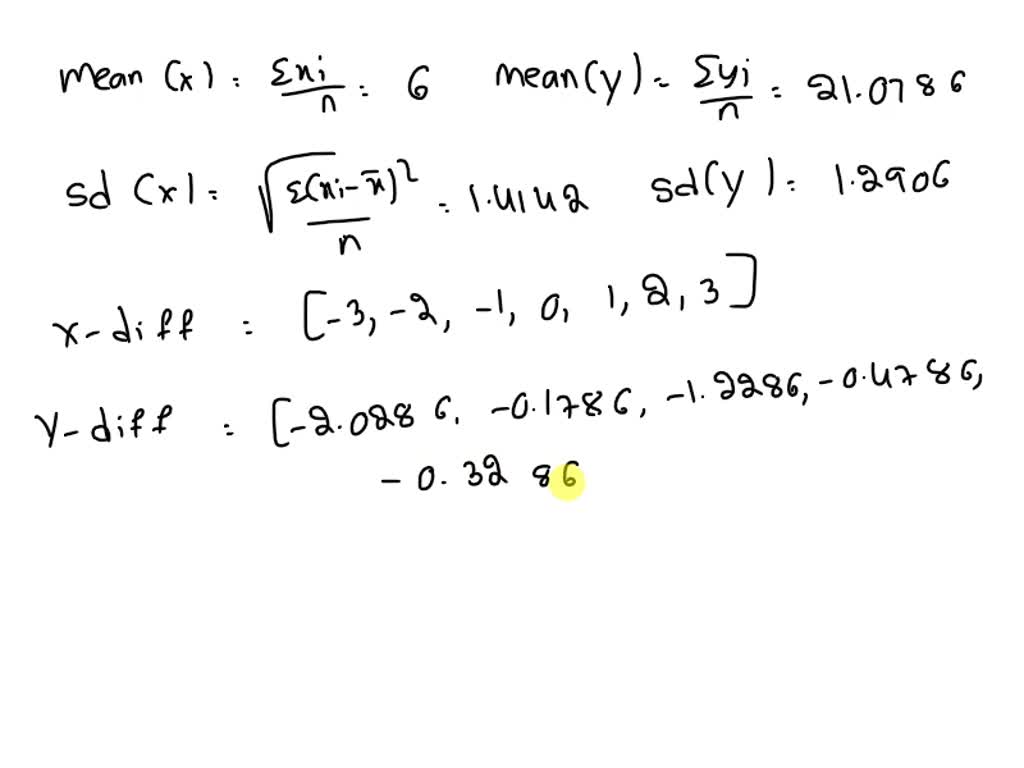 mean (x) = Σxi/n = 6 mean(y) = Σyi/n = 21.0786
sd (x) = √Σ(xi-x̄)²/n = 1.4142 sd(y) = 1.2906
x-diff = [-3, -2, -1, 0, 1, 2, 3]
y-diff = [-2.0286, -0.1786, -1.2286, -0.4786,
-0.3286